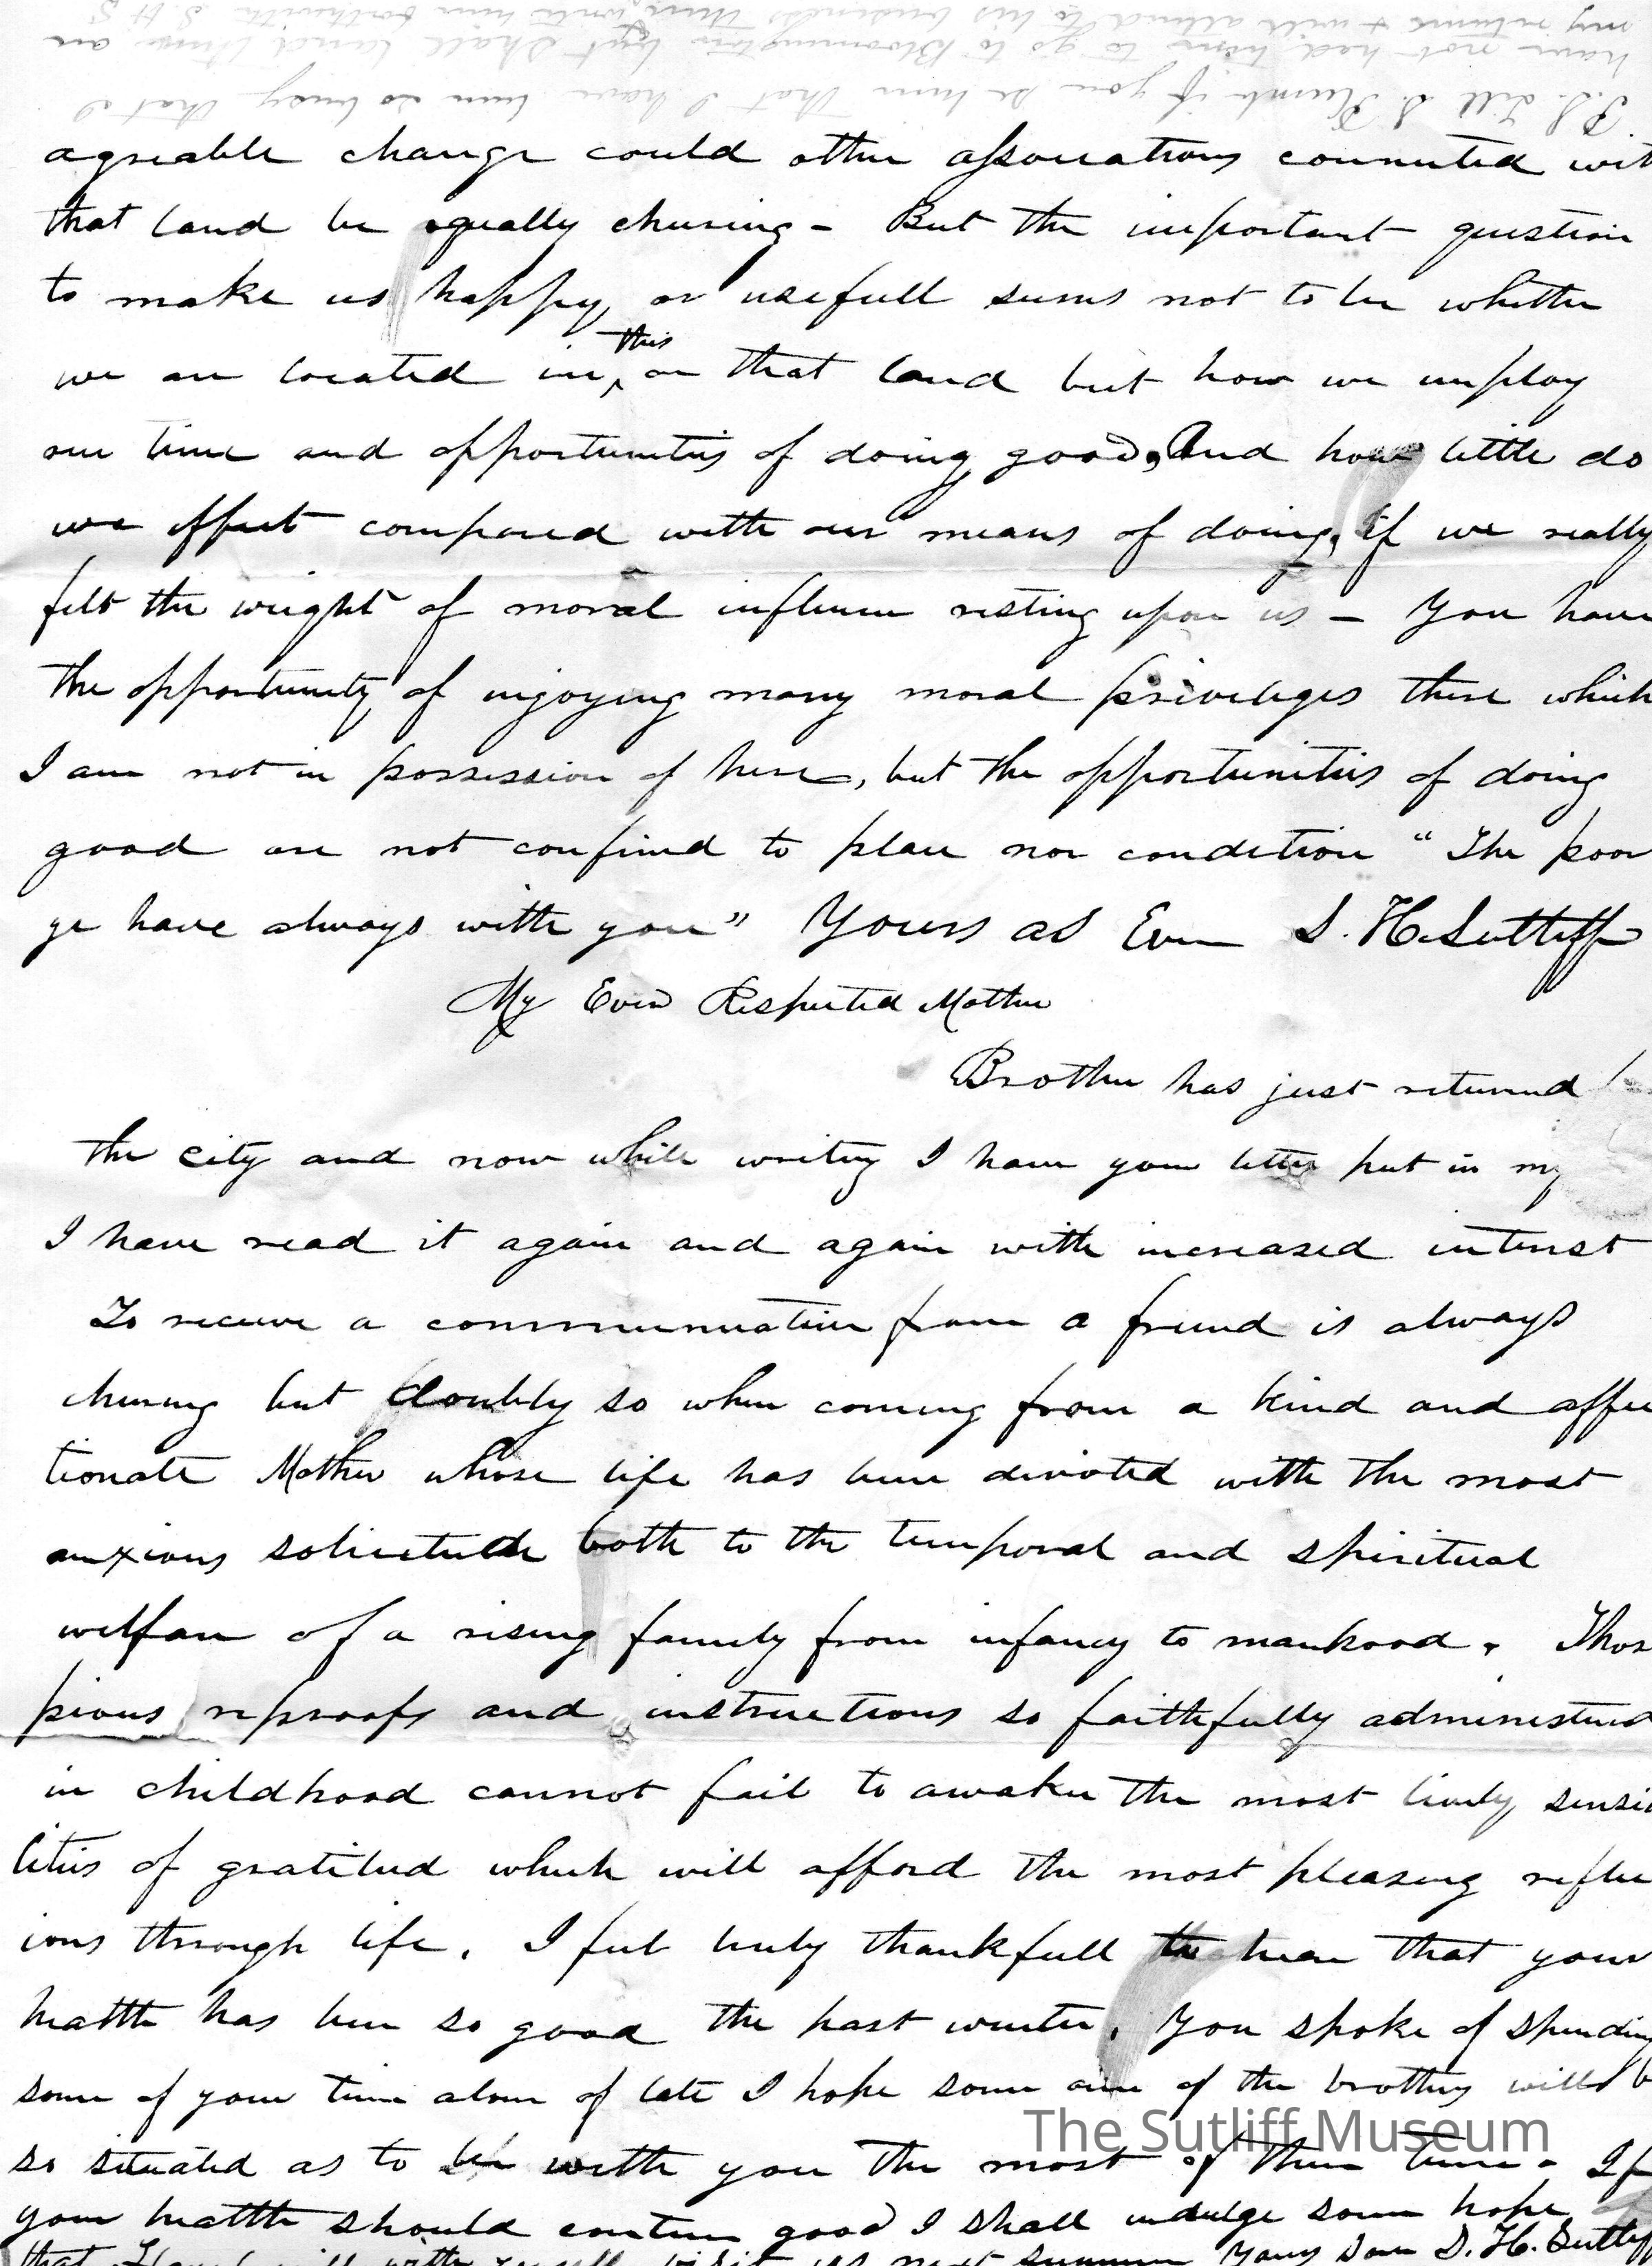 P.S. Tell S. Plumb if you se him that I have been so busy that I
have not had time to go to Bloomington but shall land there on
my return & will attend to his business then, write him forthwith S. H. S
agreable change could other associations connected wit
that land be equally chering - But the important question
to make us happy, or usefull seems not to be whether
we are located in, this or that land but how we employ
our time and opportunities of doing good, And how little do
we effect compared with our means of doing, if we really
felt the weight of moral influence resting upon us - You have
the opportunity of enjoying many moral priveleges there which
I am not in possession of here, but the opportunities of doing
good are not confined to place nor condition "The poor
ye have always with you" Yours as Ever S. H. Sutliff
My Ever Respected Mother
Brother has just returned
the city and now while writing I have your letter put in my
I have read it again and again with increased interest
To receive a communication from a friend is always
chering but doubly so when coming from a kind and affec
tionate Mother whose life has been devoted with the most
anxious solicitude both to the temporal and spiritual
welfare of a rising family from infancy to manhood. Thos
pious reproofs and instructions so faithfully administered
in childhood cannot fail to awaken the most lively sensi
lities of gratitud which will afford the most pleasing reflec
ions through life. I feel truly thankfull to hear that your
health has been so good the past winter. You spoke of spending
some of your time alone of late I hope some one of the brothers will b
so situated as to be with you the most of their time. If
your health should continue good I shall indulge some hope
that will with visit us next summer Yours Son D. H. Sutliff
The Sutliff Museum